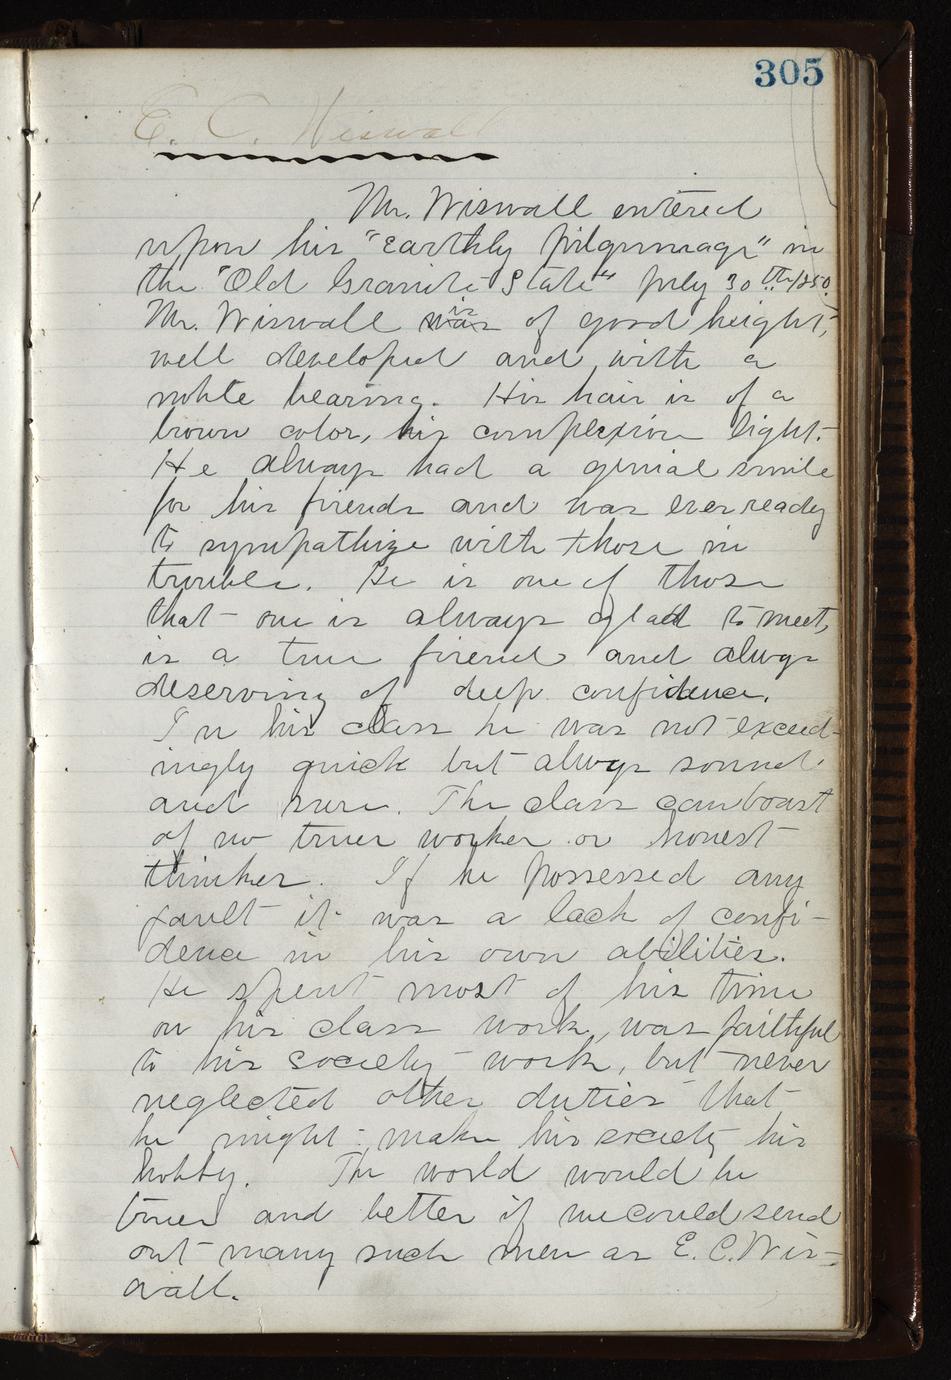 305
E. C. Wiswall
Mr. Wiswall entered
upon his "earthly pilgrimage" in
the "Old Granite State" July 30th/1850.
Mr. Wiswall was is of good height,
well developed and with a
noble bearing. His hair is of a
brown color, his complexion light.
He always had a genial smile
for his firends and was ever ready
to sympathize with those in
trouble. He is one of those
that one is always glad to meet,
is a true firend and alwys
deserving of deep confidence.
In his class he was not exceed-
ingly quick but alwys sound
and sure. The class can boast
of no truer worker or honest
thinker. If he possessed any
fault it was a lack of confi-
dence in his own abilities.
He spent most of his time
on his class work, was faithful
to his society work, but never
neglected other duties that
he might make his society his
hobby. The world would be
truer and better if we could send
out many such men as E. C. Wis-
wall.